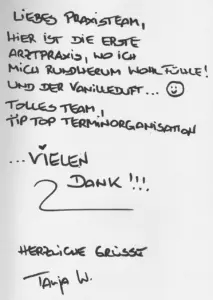 LIEBES PRAXISTEAM,
HIER IST DIE ERSTE
ARZTPRAXIS, WO ICH
MICH RUNDHERUM WOHL FÜHLE!
UND DER VANILLEDUFT... ☺
TOLLES TEAM,
TIP TOP TERMINORGANISATION
...VIELEN
DANK!!!
HERZLICHE GRÜSSE
Tanja W.